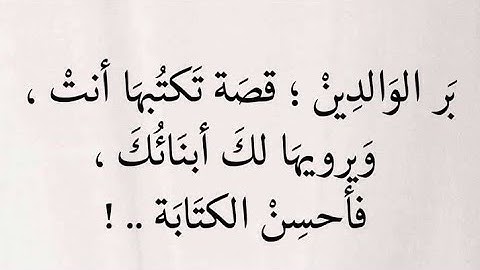 بَر الوَالدِينْ ؛ قصَة تَكتُبهَا أنتْ ،
وَيرويهَا لكَ أبنَائُكَ ،
فأحسِنْ الكتَابَة .. !